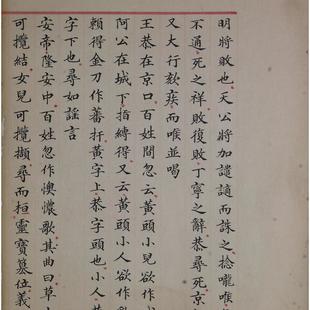 明將敗也天公將加譴謫而誅之捻嚨喉
不通死之祥敗復敗丁寧之辭恭尋死京
又大行欬疾而喉並喝
王恭在京口百姓間忽云黃頭小兒欲作
阿公在城下指縛得又云黃頭小人欲作
賴得金刀作蕃扞黃字上恭字頭也小人恭
字下也尋如謠言
安帝隆安中百姓忽作懊憹歌其曲曰草
可攬結女兒可攬擷尋而桓靈寶篡位義